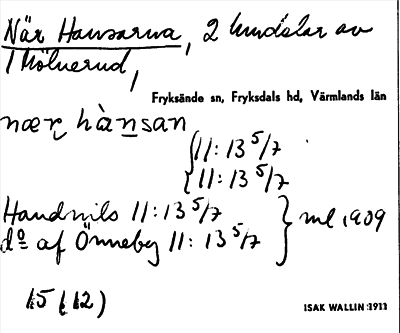 När Hansarna, 2 hundelar av
1 Kölnerud,
Fryksände sn, Fryksdals hd, Värmlands län
nær hànsan
11:13 5/7
11:13 5/7
Handnils 11:13 5/7
do af Önneby 11:13 5/7
ml 1909
15 (12)
ISAK WALLIN 1911